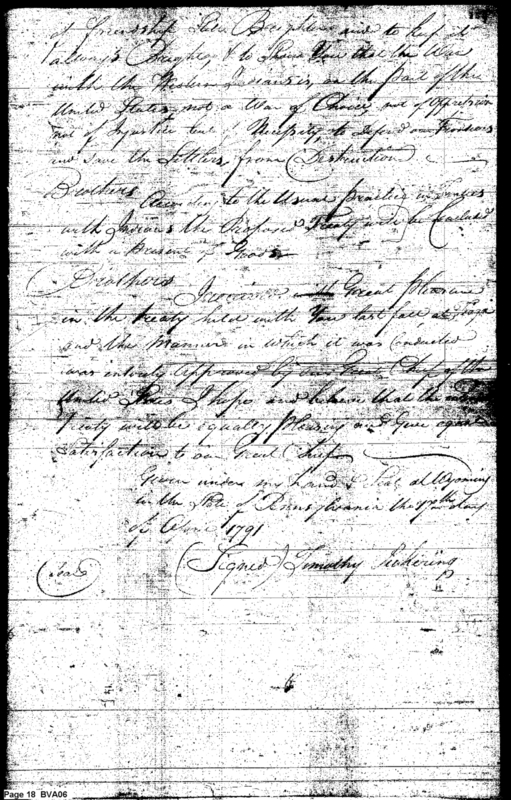 of friendship
always Brighter & to Shew You that the War
with the Western Indians, on the part of the
United States, not a War of Choice, not of Oppression
not of Injustice but of Necessity, to defend our Frontiers
and save the Settlers from Destruction
Brothers
According to the Usual practice in Treaties
with Indians the Proposed Treaty will be
with a Present of Goods
Brothers
Great Pleasure
in the treaty held with You last fall at Tioga
and the Manner in which it was conducted
was entirely approved by our Great Chief of the
United States I hope and believe that the
treaty will be equally pleasing and Give equal
Satisfaction to our Great Chief
Given under my hand & Seal at Wyoming
in the State of Pennsylvania the day
of April 1791
(Signed) Timothy Pickering
(Seal)
Page 18 BVA06